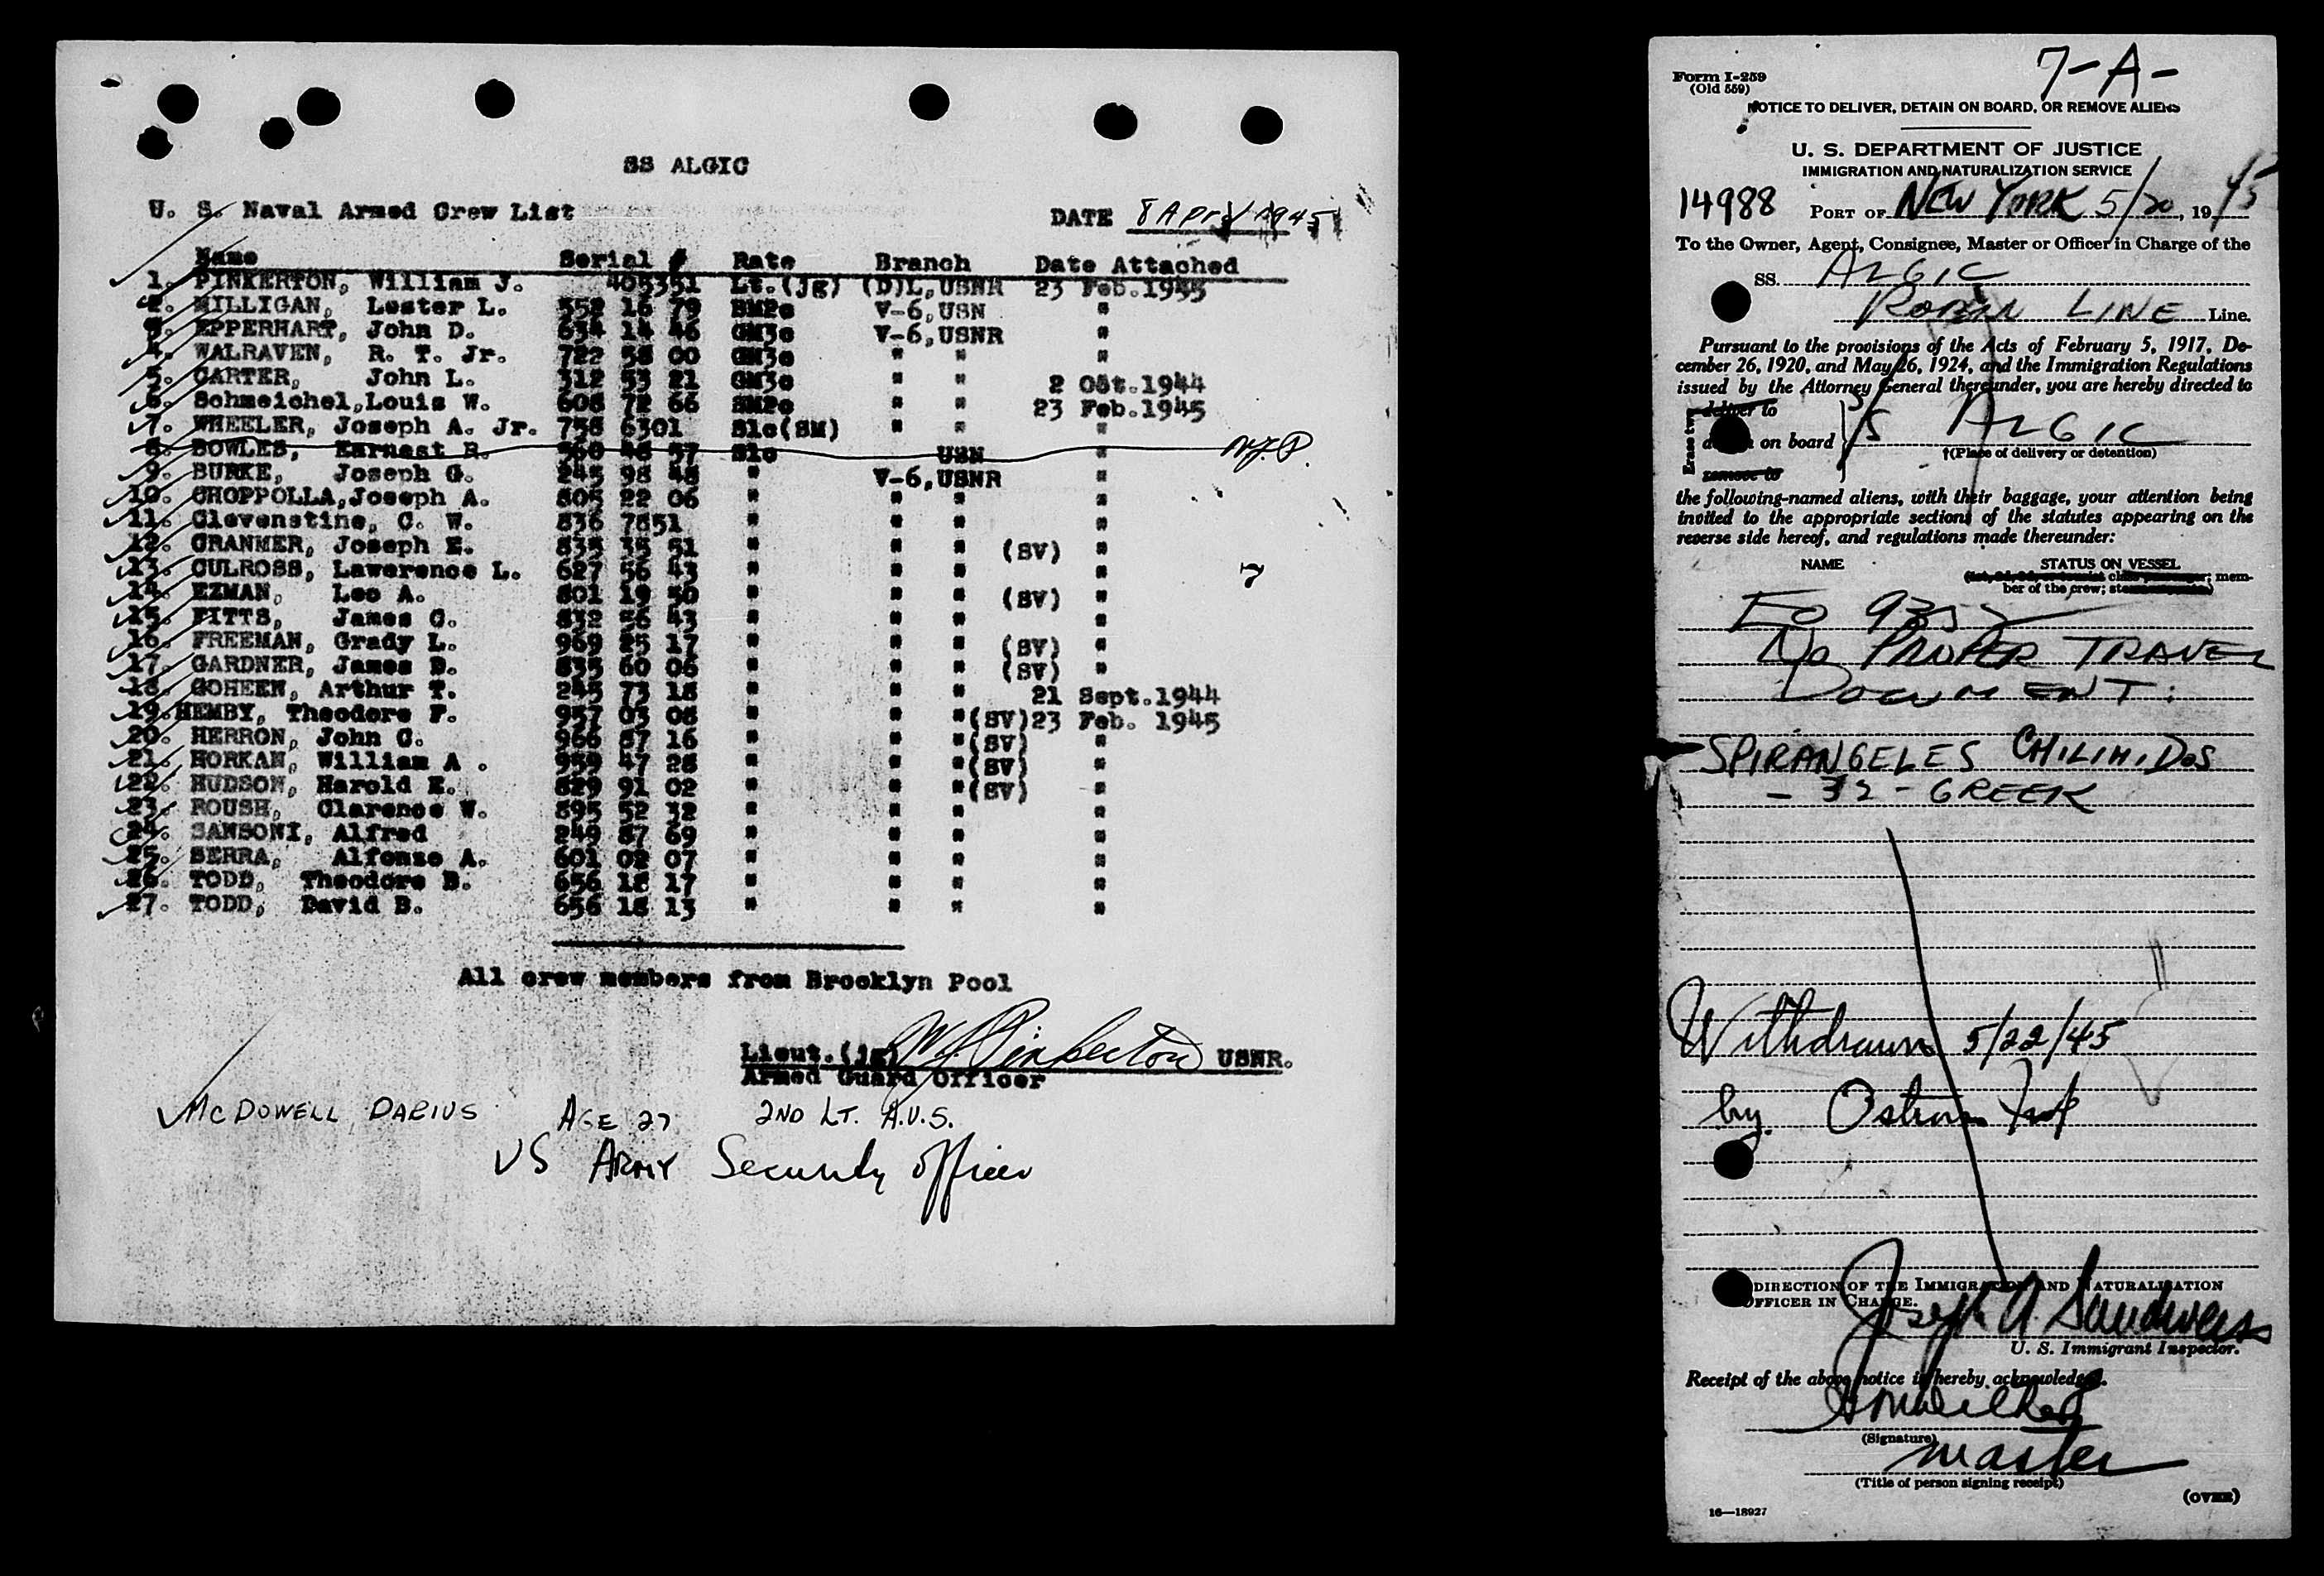 SS ALGIC
U. S. Naval Armed Crew List
DATE 8 April 1945
Name Serial # Rate Branch Date Attached
1. PINKERTON, William J. 405351 Lt.(jg) (D)L,USNR 23 Feb.1945
2. MILLIGAN, Lester L. 552 16 79 BM2c V-6,USN "
3. EPPERHART, John D. 634 14 46 GM3c V-6,USNR "
4. WALRAVEN, R. T. Jr. 722 58 00 GM3c " " "
5. CARTER, John L. 312 53 21 GM3c " " 2 Oct.1944
6. Schmeichel,Louis W. 608 72 66 SM2c " " 23 Feb.1945
7. WHEELER, Joseph A. Jr. 758 6301 S1c(SM) " " "
8. BOWLES, Earnest R. 360 48 57 S1c USN " W.J.P.
9. BURKE, Joseph G. 245 98 48 " V-6,USNR "
10. CHOPPOLLA,Joseph A. 805 22 06 " " " "
11. Clevenstine, C. W. 836 7851 " " " "
12. CRANMER, Joseph E. 835 35 51 " " " (SV) "
13. CULROSS, Lawerence L. 627 56 43 " " " "
14. EZMAN, Leo A. 801 19 50 " " " (SV) "
15. FITTS, James C. 832 56 43 " " " "
16. FREEMAN, Grady L. 969 25 17 " " " (SV) "
17. GARDNER, James D. 835 60 06 " " " (SV) "
18. GOHEEN, Arthur T. 245 73 18 " " " 21 Sept.1944
19. HEMBY, Theodore F. 957 03 08 " " "(SV)23 Feb. 1945
20. HERRON, John C. 966 87 16 " " "(SV) "
21. HORKAN, William A . 959 47 28 " " "(SV) "
22. HUDSON, Harold E. 829 91 02 " " "(SV) "
23. ROUSH, Clarence W. 895 52 32 " " " "
24. SANSONI, Alfred 249 87 69 " " " "
25. SERRA, Alfonso A. 601 02 07 " " " "
26. TODD, Theodore B. 656 18 17 " " " "
27. TODD, David B. 656 18 13 " " " "
7
All crew members from Brooklyn Pool
Lieut.(jg) W. J. Pinkerton USNR.
Armed Guard Officer
McDOWELL DARIUS AGE 27 2ND LT. A.U.S.
US ARMY Security officer
7-A-
Form I-259
(Old 559)
NOTICE TO DELIVER, DETAIN ON BOARD, OR REMOVE ALIENS
U. S. DEPARTMENT OF JUSTICE
IMMIGRATION AND NATURALIZATION SERVICE
14988 PORT OF NEW YORK 5/20, 1945
To the Owner, Agent, Consignee, Master or Officer in Charge of the
SS. ALGIC
ROBIN LINE Line.
Pursuant to the provisions of the Acts of February 5, 1917, De-
cember 26, 1920, and May 26, 1924, and the Immigration Regulations
issued by the Attorney General thereunder, you are hereby directed to
Erase two
deliver to
on board S/S ALGIC
†(Place of delivery or detention)
remove to
the following-named aliens, with their baggage, your attention being
invited to the appropriate sections of the statutes appearing on the
reverse side hereof, and regulations made thereunder:
NAME STATUS ON VESSEL
mem-
ber of the crew;
EO 9352
NO PROPER TRAVEL
DOCUMENT:
SPIRANGELES CHILIHIDOS
- 32 - GREEK
Withdrawn 5/22/45
by
DIRECTION OF THE IMMIGRATION AND NATURALIZATION
OFFICER IN CHARGE.
Joseph A. Sandweiss
U. S. Immigrant Inspector.
Receipt of the above notice is hereby acknowledged.
(Signature)
master
(Title of person signing receipt)
(OVER)
16—18927